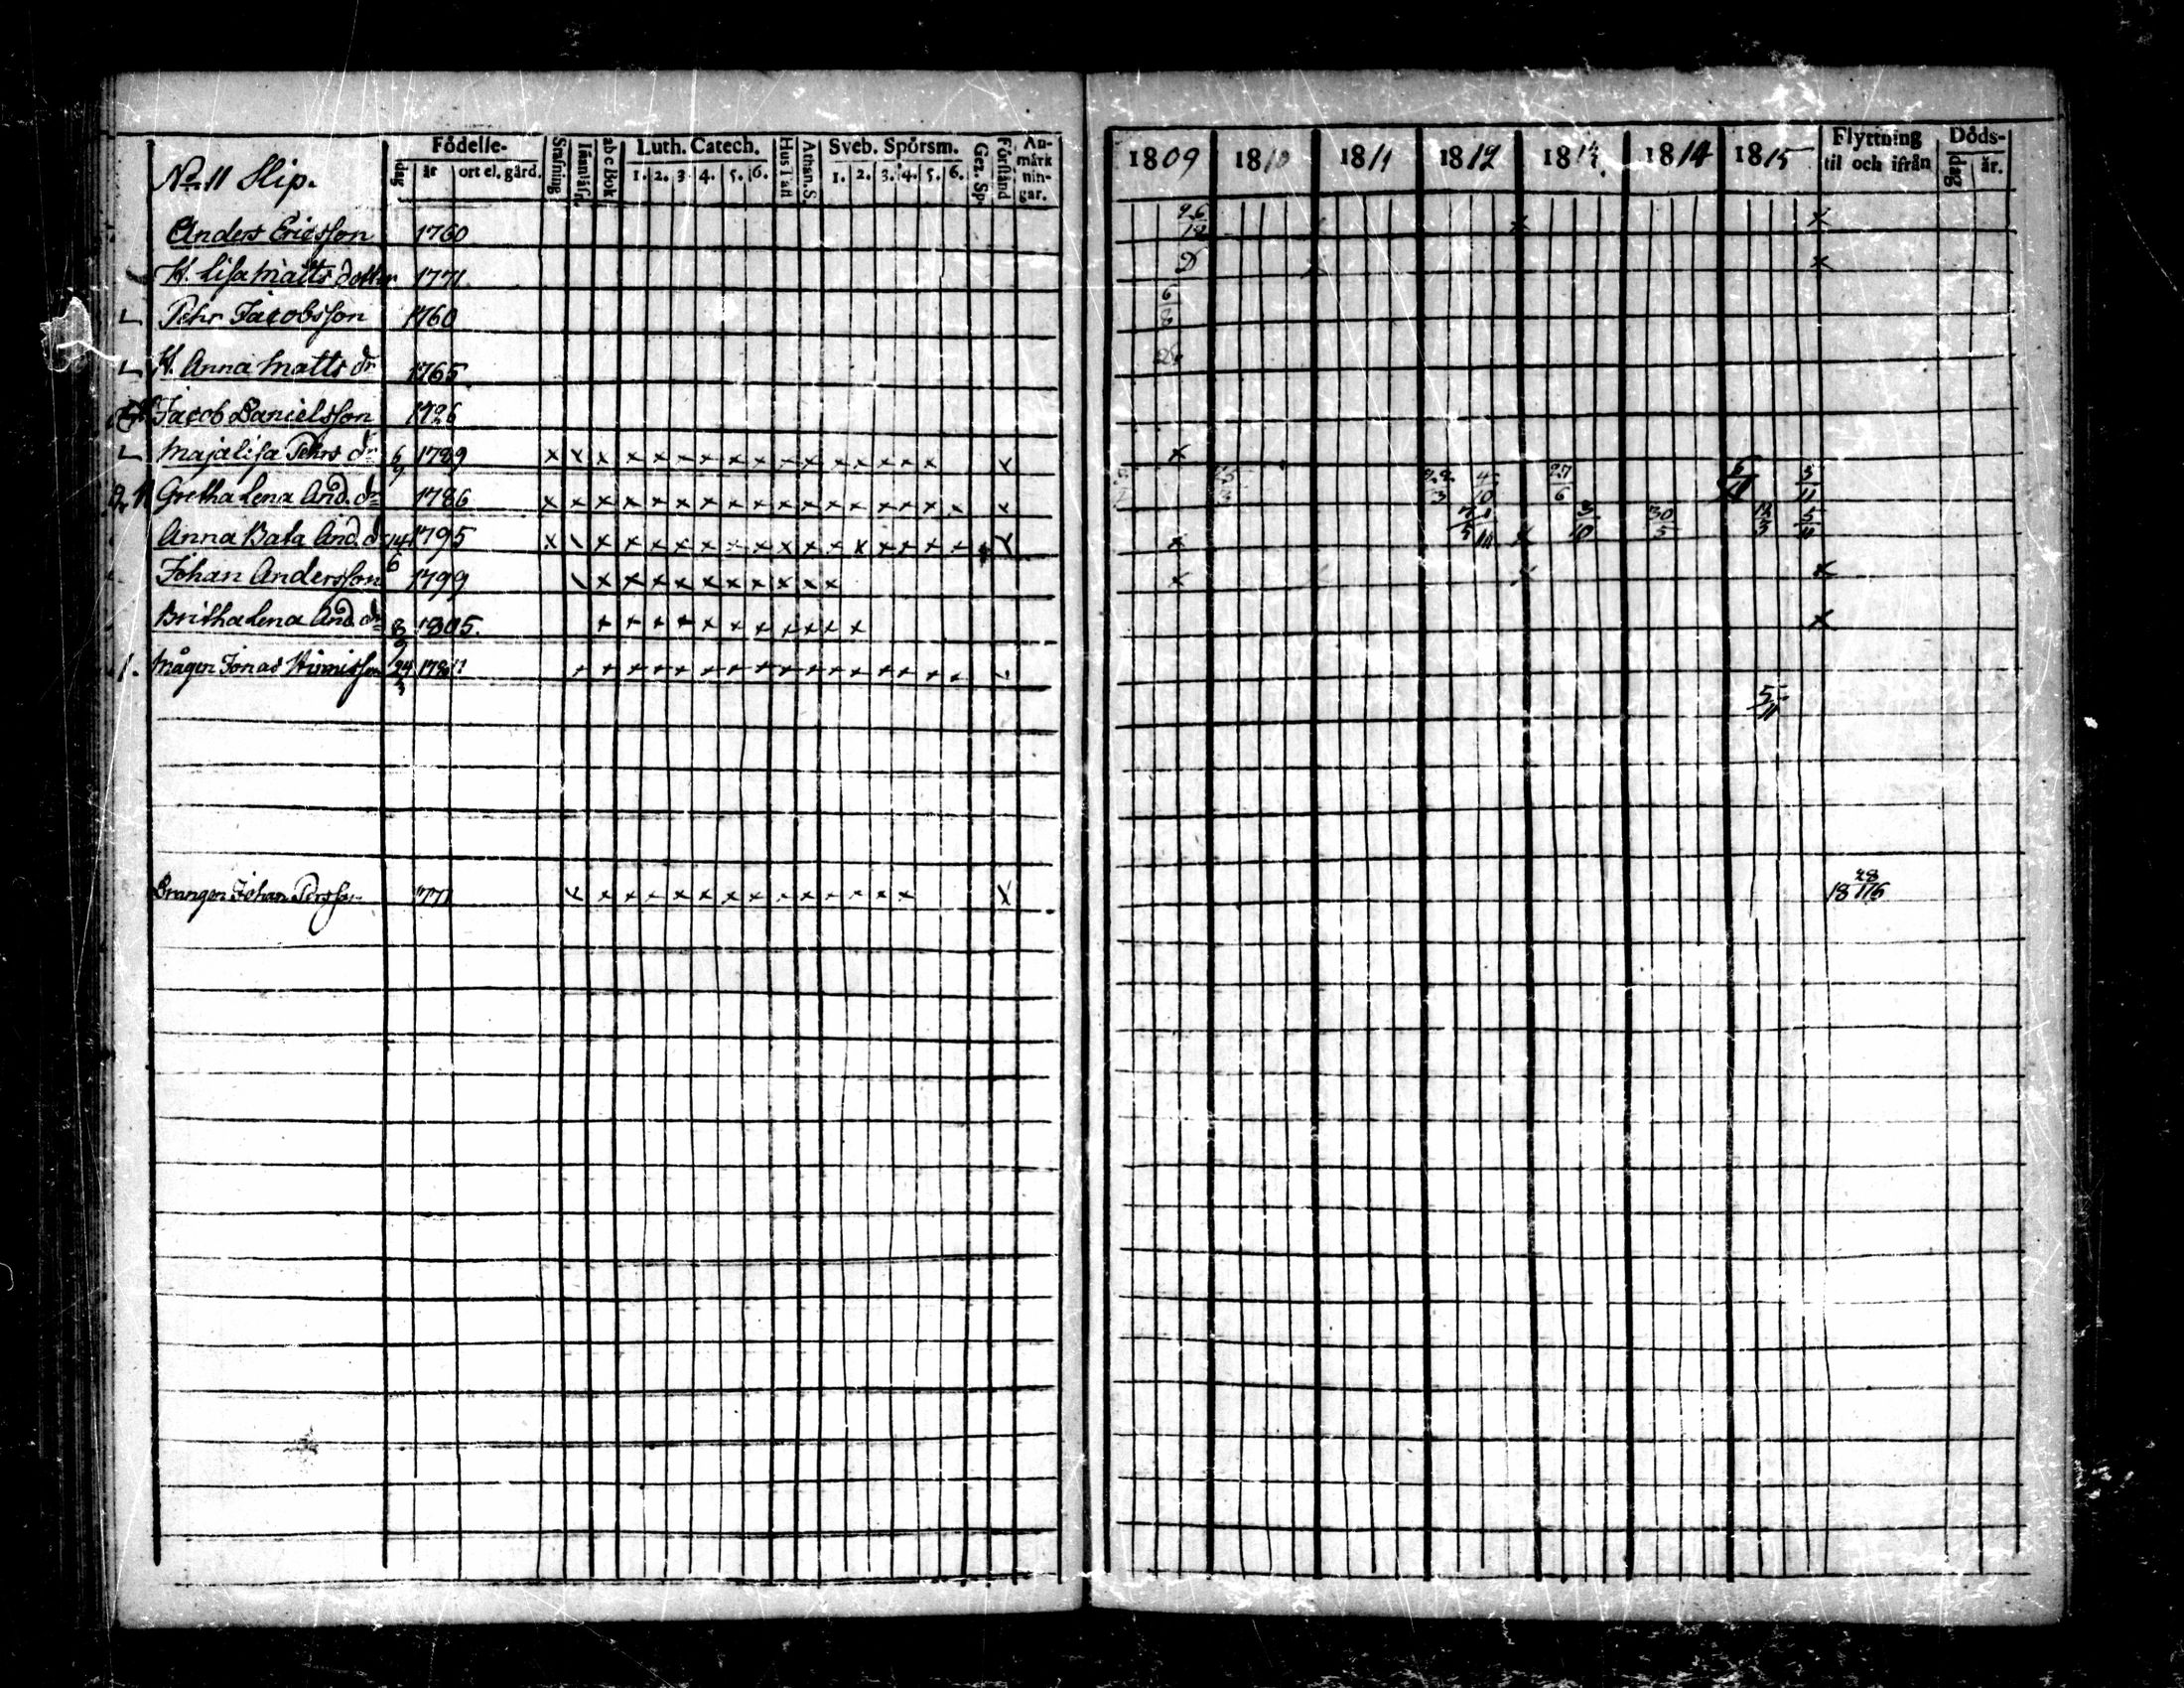 No. 11 Slip.
Födelse-
dag år ort el. gård.
Stafning
Innanläsn.
abc Bok
Luth. Catech.
1. 2. 3. 4. 5. 6.
Hus Tafl
Athan. S.
Sveb. Spörsm.
1. 2. 3. 4. 5. 6.
Gez. Sp.
Förstånd
Anmärkningar.
Anders Ericsson 1760
H. Lisa Matts dotter 1771
Pehr Jacobsson 1760
H. Anna Matts dr 1765
Jacob Danielsson 1726
Maja Lisa Pehrs dr 6/9 1789 x x x x x x x x x x x x x x x x x
Gretha Lena And. dr 1786 x x x x x x x x x x x x x x x x x x
Anna Bata And. d 14/6 1795 x x x x x x x x x x x x x x x x x
Johan Andersson 1799 x x x x x x x x x x
Britha Lena And. dr 8/9 1805. x x x x x x x x x x x
Mågen Jonas Hinnisson 24 x x x x x x x x x x x x x x x x
Johan 1771 x x x x x x x x x x x x x x x
1809 1810 1811 1812 1813 1814 1815
Flyttning
til och ifrån
Döds-
dag år.
26/12 x x
D x
6/8
x
22/3 4/10 27/6 5/11
3/10 30/5 5/11
x x x
x
5/11